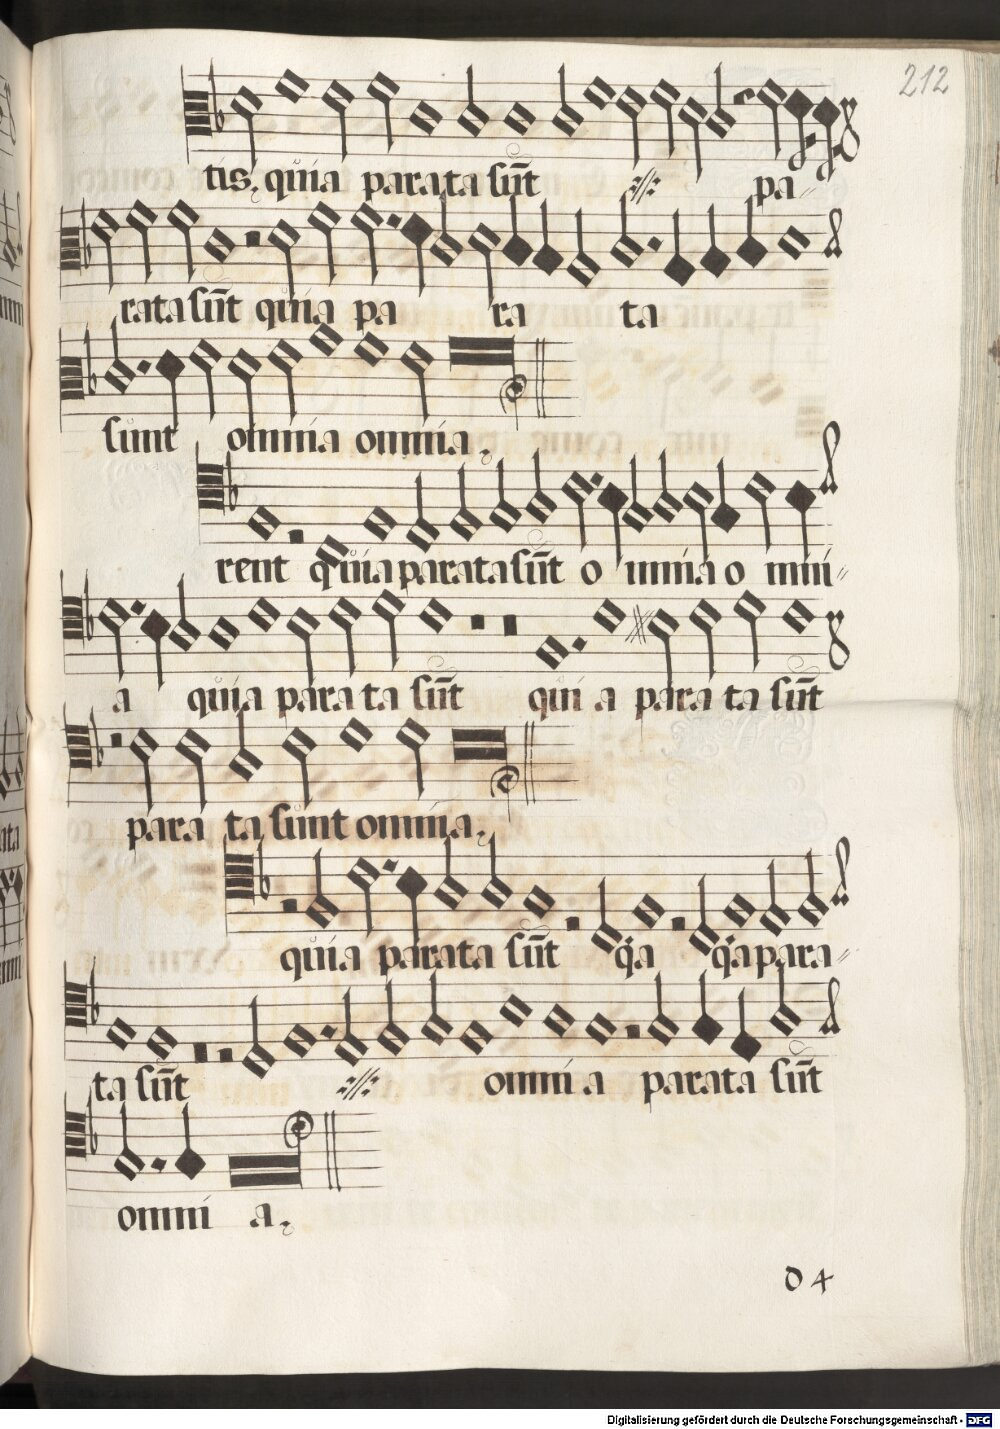 212
tis, quia parata sūt ·//· pa=
rata sūt quia pa ra ta
sunt omnia omnia,
rent quia parata sūt o mnia o mni=
a quia para ta sūt qui a para ta sūt
para ta sunt omnia,
quia parata sūt qa qa para=
ta sūt ·//· omni a parata sūt
omni a,
D 4
Digitalisierung gefördert durch die Deutsche Forschungsgemeinschaft - DFG